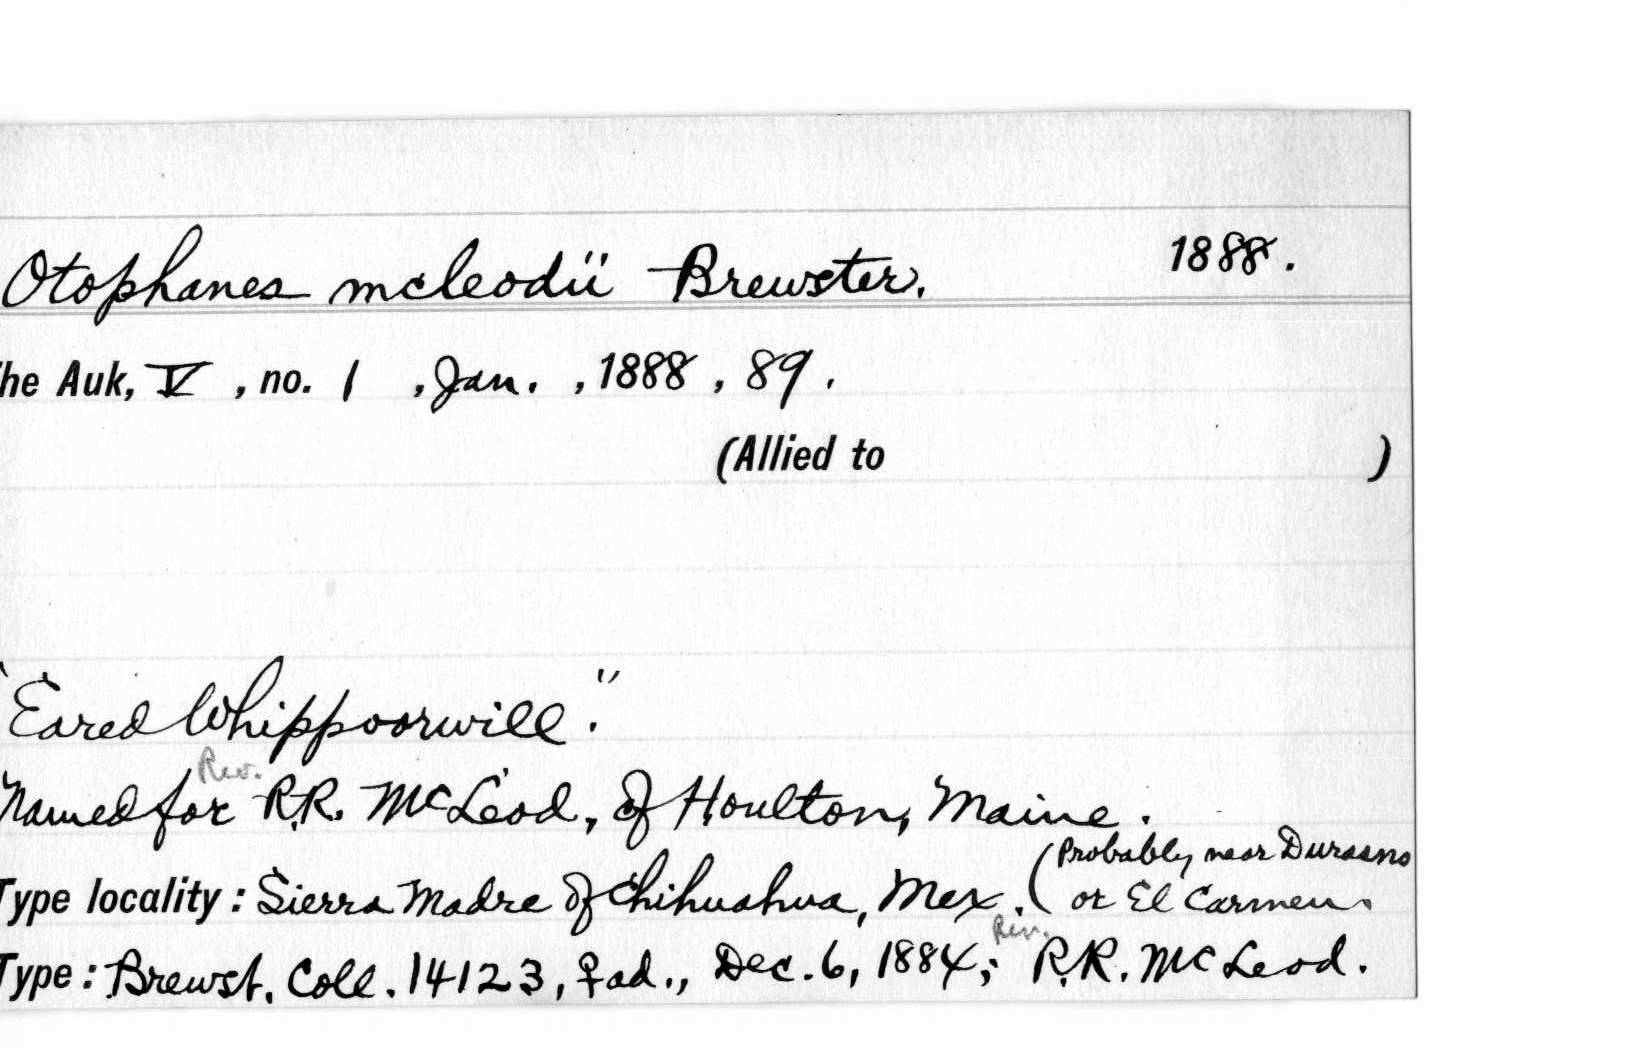 Otophanes mcleodii Brewster. 1888.
he Auk, V , no. 1 , Jan. , 1888 , 89 .
(Allied to )
"Eared Whippoorwill."
Rev.
Named for R.R. McLeod, of Houlton, Maine.
(Probably near Durasno
Type locality: Sierra Madre of Chihuahua, Mex. or El Carmen.
Rev.
Type: Brewst. Coll. 14123, ♀ ad., Dec. 6, 1884; R.R. McLeod.